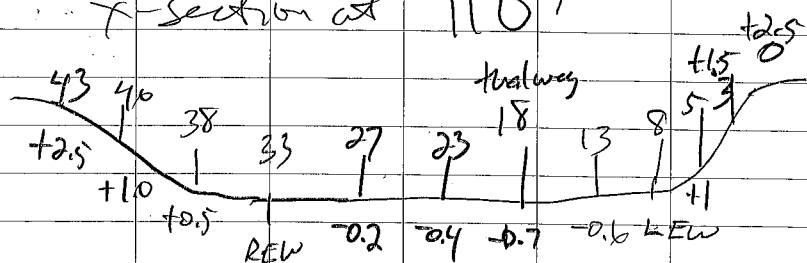 x-section at 110'
+2.5
0
+1.5
3
43 40 38 33 27 23 thalweg 18 13 8 5
+2.5 +1.0 +0.5 REW -0.2 -0.4 -0.7 -0.6 LEW +1